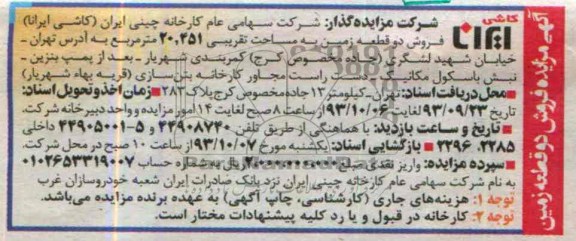 آگهی مزایده فروش دو قطعه زمین
کاشی ایرانا
شرکت مزایده گذار: شرکت سهامی عام کارخانه چینی ایران (کاشی ایرانا)
فروش دو قطعه زمین به مساحت تقریبی ۲۰,۴۵۱ مترمربع به آدرس تهران -
خیابان شهید لشگری (جاده مخصوص کرج) کمربندی شهریار - بعد از پمپ بنزین -
نبش باسکول مکانیک - سمت راست مجاور کارخانه بتن سازی (قریه بهاه شهریار)
■ محل دریافت اسناد: تهران - کیلومتر ۱۳ جاده مخصوص کرج پلاک ۲۸۳ ■ زمان اخذ و تحویل اسناد:
تاریخ ۹۳/۰۹/۲۳ لغایت ۹۳/۱۰/۰۶ از ساعت ۸ صبح لغایت ۱۴ امور مزایده و واحد دبیرخانه شرکت
■ تاریخ و ساعت بازدید: با هماهنگی از طریق تلفن ۴۴۹۰۸۷۴۰ و ۵-۴۴۹۰۵۰۰۱ داخلی
۲۲۸۵، ۲۲۹۶ ■ بازگشایی اسناد: یکشنبه مورخ ۹۳/۱۰/۰۷ از ساعت ۱۰ صبح در محل شرکت.
■ سپرده مزایده: واریز نقدی مبلغ ریال به شماره حساب ۰۱۰۲۶۵۳۳۱۹۰۰۷
به نام شرکت سهامی عام کارخانه چینی ایران نزد بانک صادرات ایران شعبه خودروسازان غرب
توجه ۱: هزینه های جاری (کارشناسی، چاپ آگهی) به عهده برنده مزایده می باشد.
توجه ۲: کارخانه در قبول و یا رد کلیه پیشنهادات مختار است.